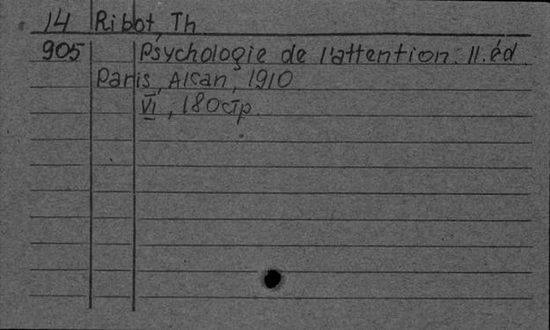 14 Ribot, Th.
905 Psychologie de l'attention. 11. éd.
Paris, Alcan, 1910
VI, 180стр.